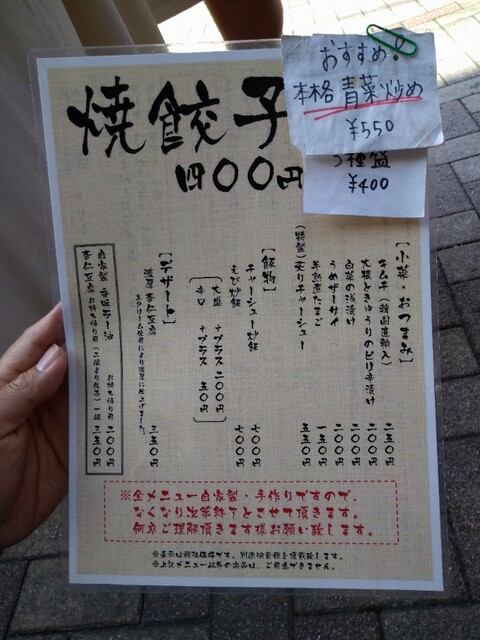 焼餃子
四〇〇円
おすすめ!
本格青菜炒め
¥550
3種盛
¥400
【小菜・おつまみ】
キムチ(韓国直輸入) 二五〇円
大根ときゅうりのピリ辛漬け 二〇〇円
白菜の浅漬け 二〇〇円
うめザーサイ 二〇〇円
半熟煮たまご 一五〇円
(特製)炙りチャーシュー 五五〇円
【飯物】
チャーシュー炒飯 七〇〇円
えび炒飯 七〇〇円
大盛 +プラス 二〇〇円
辛口 +プラス 五〇円
【デザート】
濃厚 杏仁豆腐 三五〇円
生クリーム使用により濃厚に仕上げました。
自家製 香味ラー油 お持ち帰り用 二〇〇円
杏仁豆腐 お持ち帰り用(二個より販売) 一個 三五〇円
※全メニュー自家製・手作りですので、
なくなり次第終了とさせて頂きます。
何卒ご理解頂きます様お願い致します。
※表示は税抜価格です。別途消費税を頂戴致します。
※上記メニュー以外の商品は、ご用意できません。